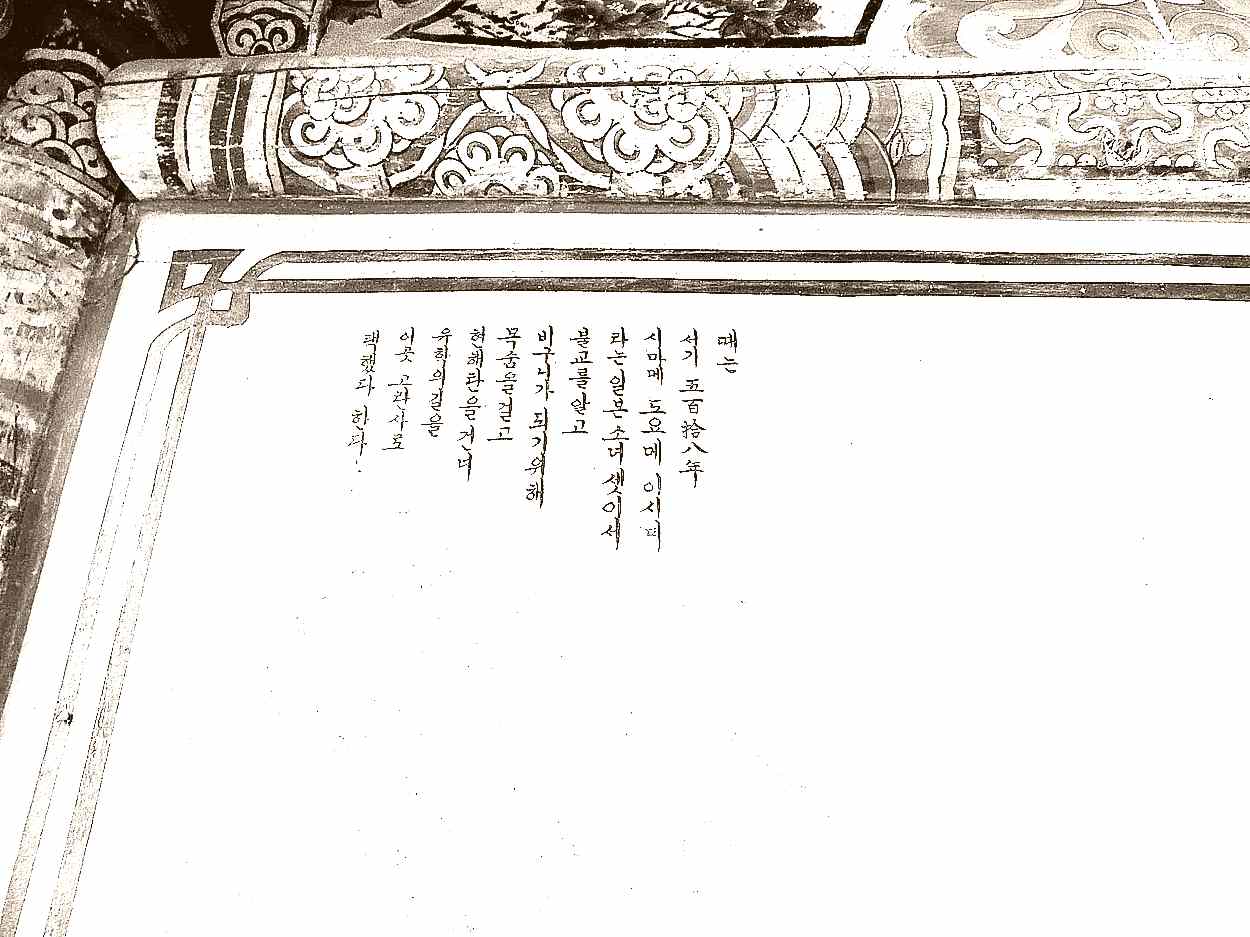 때는
서기 五百拾八年
시마메 도요메 이시메
라는 일본소녀 셋이서
불교를 알고
비구니가 되기위해
목숨을걸고
현해탄을 건너
유학의길을
이곳 고란사로
택했다 한다.